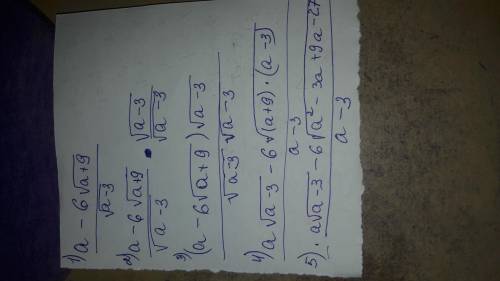 1) a - 6√a+9 / √a-3
2) a - 6√a+9 / √a-3 • √a-3 / √a-3
3) (a - 6√a+9)√a-3 / √a-3 √a-3
4) a√a-3 - 6√(a+9)·(a-3) / a-3
5) · a√a-3 - 6√a²-3a+9a-27 / a-3